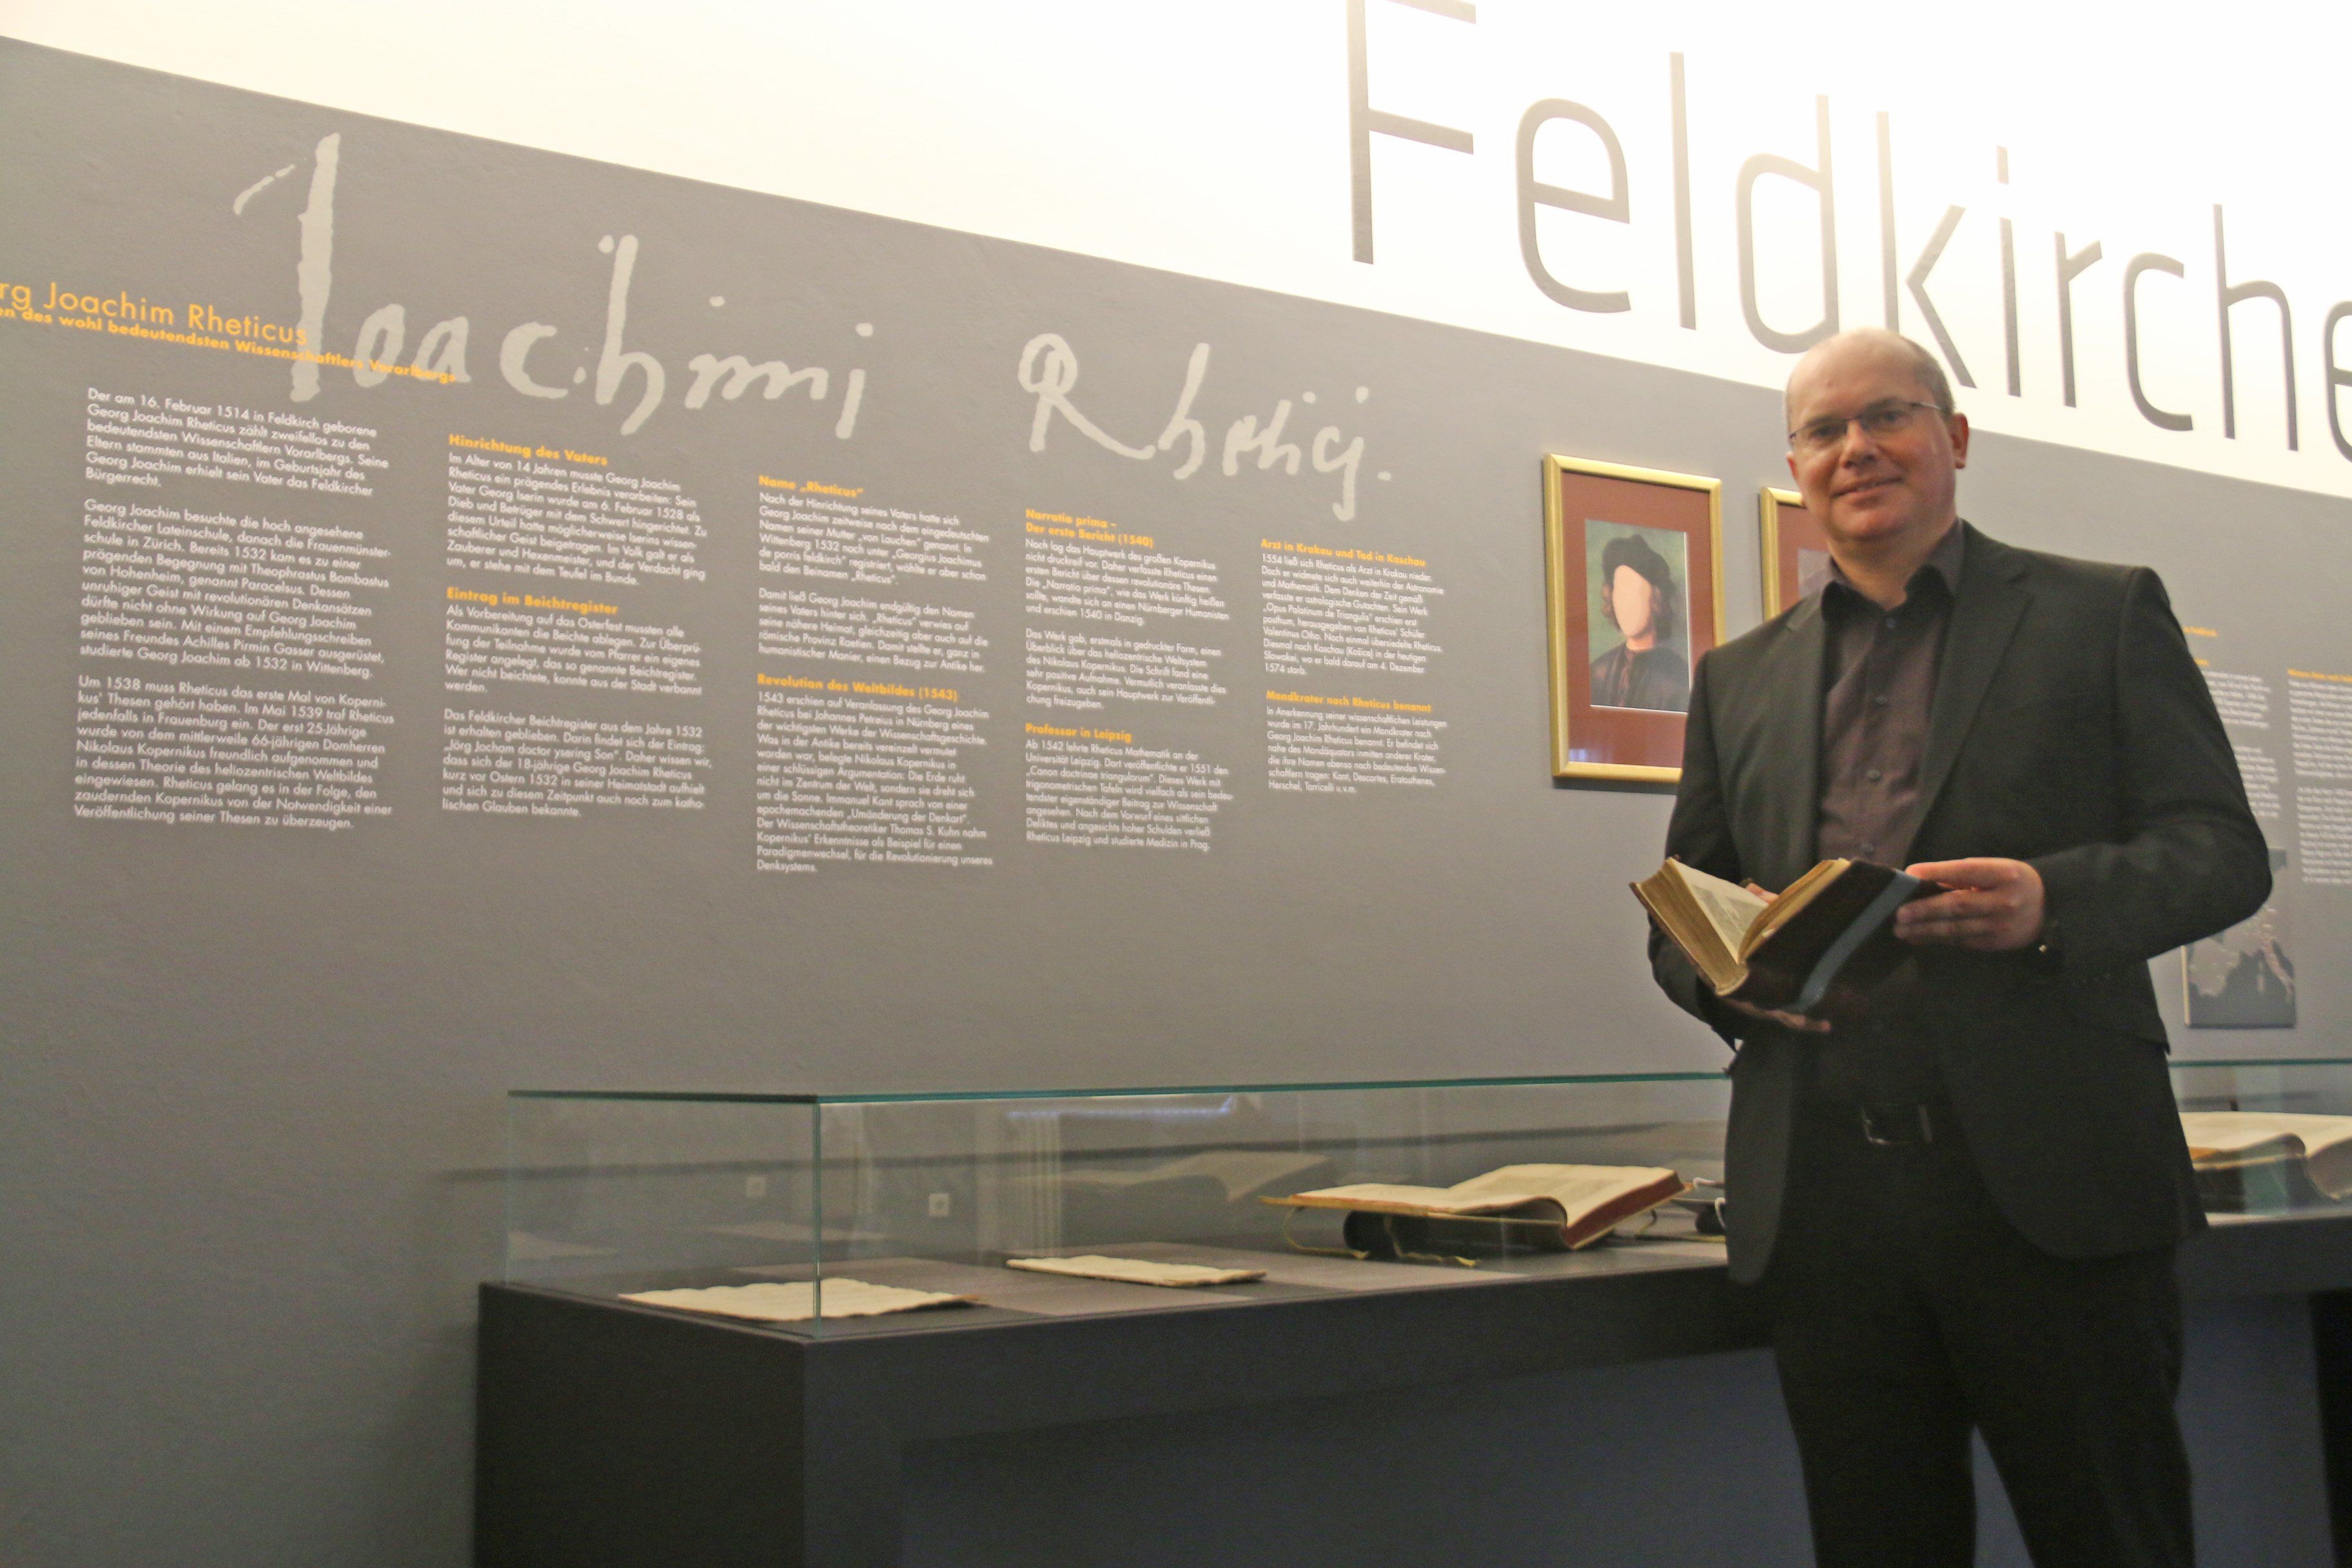 Feldkirche
Joachimi Rhetici
rg Joachim Rheticus
en des wohl bedeutendsten Wissenschaftlers Vorarlbergs
Der am 16. Februar 1514 in Feldkirch geborene
Georg Joachim Rheticus zählt zweifellos zu den
bedeutendsten Wissenschaftlern Vorarlbergs. Seine
Eltern stammten aus Italien, im Geburtsjahr des
Georg Joachim erhielt sein Vater das Feldkircher
Bürgerrecht.
Georg Joachim besuchte die hoch angesehene
Feldkircher Lateinschule, danach die Frauenmünster-
schule in Zürich. Bereits 1532 kam es zu einer
prägenden Begegnung mit Theophrastus Bombastus
von Hohenheim, genannt Paracelsus. Dessen
unruhiger Geist mit revolutionären Denkansätzen
dürfte nicht ohne Wirkung auf Georg Joachim
geblieben sein. Mit einem Empfehlungsschreiben
seines Freundes Achilles Pirmin Gasser ausgerüstet,
studierte Georg Joachim ab 1532 in Wittenberg.
Um 1538 muss Rheticus das erste Mal von Koperni-
kus' Thesen gehört haben. Im Mai 1539 traf Rheticus
jedenfalls in Frauenburg ein. Der erst 25-Jährige
wurde von dem mittlerweile 66-jährigen Domherren
Nikolaus Kopernikus freundlich aufgenommen und
in dessen Theorie des heliozentrischen Weltbildes
eingewiesen. Rheticus gelang es in der Folge, den
zaudernden Kopernikus von der Notwendigkeit einer
Veröffentlichung seiner Thesen zu überzeugen.
Hinrichtung des Vaters
Im Alter von 14 Jahren musste Georg Joachim
Rheticus ein prägendes Erlebnis verarbeiten: Sein
Vater Georg Iserin wurde am 6. Februar 1528 als
Dieb und Betrüger mit dem Schwert hingerichtet. Zu
diesem Urteil hatte möglicherweise Iserins wissen-
schaftlicher Geist beigetragen. Im Volk galt er als
Zauberer und Hexenmeister, und der Verdacht ging
um, er stehe mit dem Teufel im Bunde.
Eintrag im Beichtregister
Als Vorbereitung auf das Osterfest mussten alle
Kommunikanten die Beichte ablegen. Zur Überprü-
fung der Teilnahme wurde vom Pfarrer ein eigenes
Register angelegt, das so genannte Beichtregister.
Wer nicht beichtete, konnte aus der Stadt verbannt
werden.
Das Feldkircher Beichtregister aus dem Jahre 1532
ist erhalten geblieben. Darin findet sich der Eintrag:
„Jörg Jocham doctor ysering Son". Daher wissen wir,
dass sich der 18-jährige Georg Joachim Rheticus
kurz vor Ostern 1532 in seiner Heimatstadt aufhielt
und sich zu diesem Zeitpunkt auch noch zum katho-
lischen Glauben bekannte.
Name „Rheticus"
Nach der Hinrichtung seines Vaters hatte sich
Georg Joachim zeitweise nach dem eingedeutschten
Namen seiner Mutter „von Lauchen" genannt. In
Wittenberg 1532 noch unter „Georgius Joachimus
de porris feldkirch" registriert, wählte er aber schon
bald den Beinamen „Rheticus".
Damit ließ Georg Joachim endgültig den Namen
seines Vaters hinter sich. „Rheticus" verwies auf
seine nähere Heimat, gleichzeitig aber auch auf die
römische Provinz Raetien. Damit stellte er, ganz in
humanistischer Manier, einen Bezug zur Antike her.
Revolution des Weltbildes (1543)
1543 erschien auf Veranlassung des Georg Joachim
Rheticus bei Johannes Petreius in Nürnberg eines
der wichtigsten Werke der Wissenschaftsgeschichte.
Was in der Antike bereits vereinzelt vermutet
worden war, belegte Nikolaus Kopernikus in
einer schlüssigen Argumentation: Die Erde ruht
nicht im Zentrum der Welt, sondern sie dreht sich
um die Sonne. Immanuel Kant sprach von einer
epochemachenden „Umänderung der Denkart".
Der Wissenschaftstheoretiker Thomas S. Kuhn nahm
Kopernikus' Erkenntnisse als Beispiel für einen
Paradigmenwechsel, für die Revolutionierung unseres
Denksystems.
Narratio prima –
Der erste Bericht (1540)
Noch lag das Hauptwerk des großen Kopernikus
nicht druckreif vor. Daher verfasste Rheticus einen
ersten Bericht über dessen revolutionäre Thesen.
Die „Narratio prima", wie das Werk künftig heißen
sollte, wandte sich an einen Nürnberger Humanisten
und erschien 1540 in Danzig.
Das Werk gab, erstmals in gedruckter Form, einen
Überblick über das heliozentrische Weltsystem
des Nikolaus Kopernikus. Die Schrift fand eine
sehr positive Aufnahme. Vermutlich veranlasste dies
Kopernikus, auch sein Hauptwerk zur Veröffentli-
chung freizugeben.
Professor in Leipzig
Ab 1542 lehrte Rheticus Mathematik an der
Universität Leipzig. Dort veröffentlichte er 1551 den
„Canon doctrinae triangulorum". Dieses Werk mit
trigonometrischen Tafeln wird vielfach als sein bedeu-
tendster eigenständiger Beitrag zur Wissenschaft
angesehen. Nach dem Vorwurf eines sittlichen
Deliktes und angesichts hoher Schulden verließ
Rheticus Leipzig und studierte Medizin in Prag.
Arzt in Krakau und Tod in Kaschau
1554 ließ sich Rheticus als Arzt in Krakau nieder.
Doch er widmete sich auch weiterhin der Astronomie
und Mathematik. Dem Denken der Zeit gemäß
verfasste er astrologische Gutachten. Sein Werk
„Opus Palatinum de Triangulis" erschien erst
posthum, herausgegeben von Rheticus' Schüler
Valentinus Otho. Noch einmal übersiedelte Rheticus.
Diesmal nach Kaschau (Košice) in der heutigen
Slowakei, wo er bald darauf am 4. Dezember
1574 starb.
Mondkrater nach Rheticus benannt
In Anerkennung seiner wissenschaftlichen Leistungen
wurde im 17. Jahrhundert ein Mondkrater nach
Georg Joachim Rheticus benannt. Er befindet sich
nahe des Mondäquators inmitten anderer Krater,
die ihre Namen ebenso nach bedeutenden Wissen-
schaftlern tragen: Kant, Descartes, Eratosthenes,
Herschel, Torricelli u.v.m.